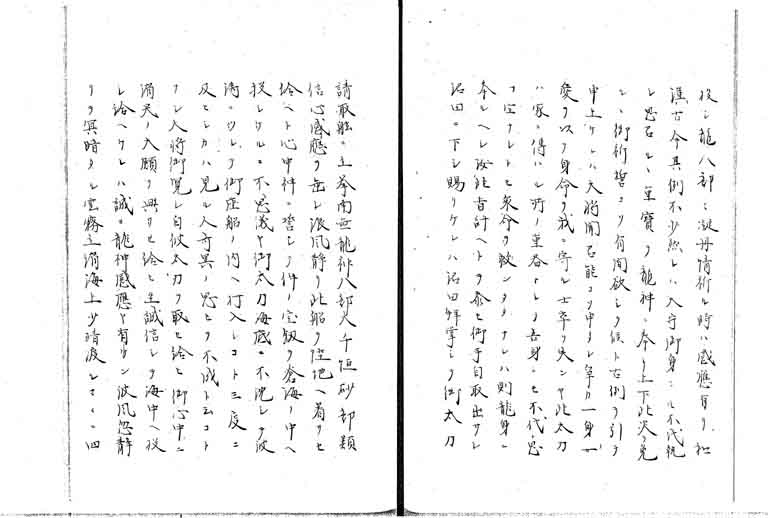 投シ龍八部ニ凝丹情祈ル時ハ感應有リ和
漢古今其例不少然レハ大守御身ニモ不代秘
レ思召シ、重寶ヲ龍神ニ奉リ上下此災ヲ免
シ、御祈誓コソ有間欲シク候ト古例ヲ引テ
申上ケレハ大將聞召能コソ申タレ卑カ一身ノ
愛ヲ以テ身命ヲ我ニ寄ル士卒ヲ失ンヤ此太刀
ハ家ニ傳ハル所ノ重吞ナレ吾身ニモ不代思
フ宝ナレトモ衆命ヲ救ンタメナレハ則龍身ニ
奉ルヘシ汝能古計ヘトヲ忝モ御手自取出サレ
沼田ニ下シ賜リケレハ沼田鮮掌シテ御太刀
請取船ノ上ニ立南無龍神八部大千恒砂部類
信心感應ヲ垂レ波風静リ此船ヲ陸地ヘ着サセ
給ヘト心中祈ニ誓シテ件ノ宝釼ヲ蒼海ノ中ヘ
投シケルニ不思議ヤ御太刀海底ニ不沈シテ波
濤ニツレテ御座船ノ内ヘ打入レコト三度ニ
及ヒシカハ見ル人奇異ノ思ヒヲ不成ト云コト
ナシ大將御覧シ自彼太刀ヲ取セ給ヒ御心中ニ
満足ノ大願ヲ興サセ給ヒ至誠信シテ海中ヘ投
シ給ヘケレハ誠ニ龍神感應ヤ有ケン波風忽静
リテ冥暗タル雲霧立消海上少晴渡シテ四